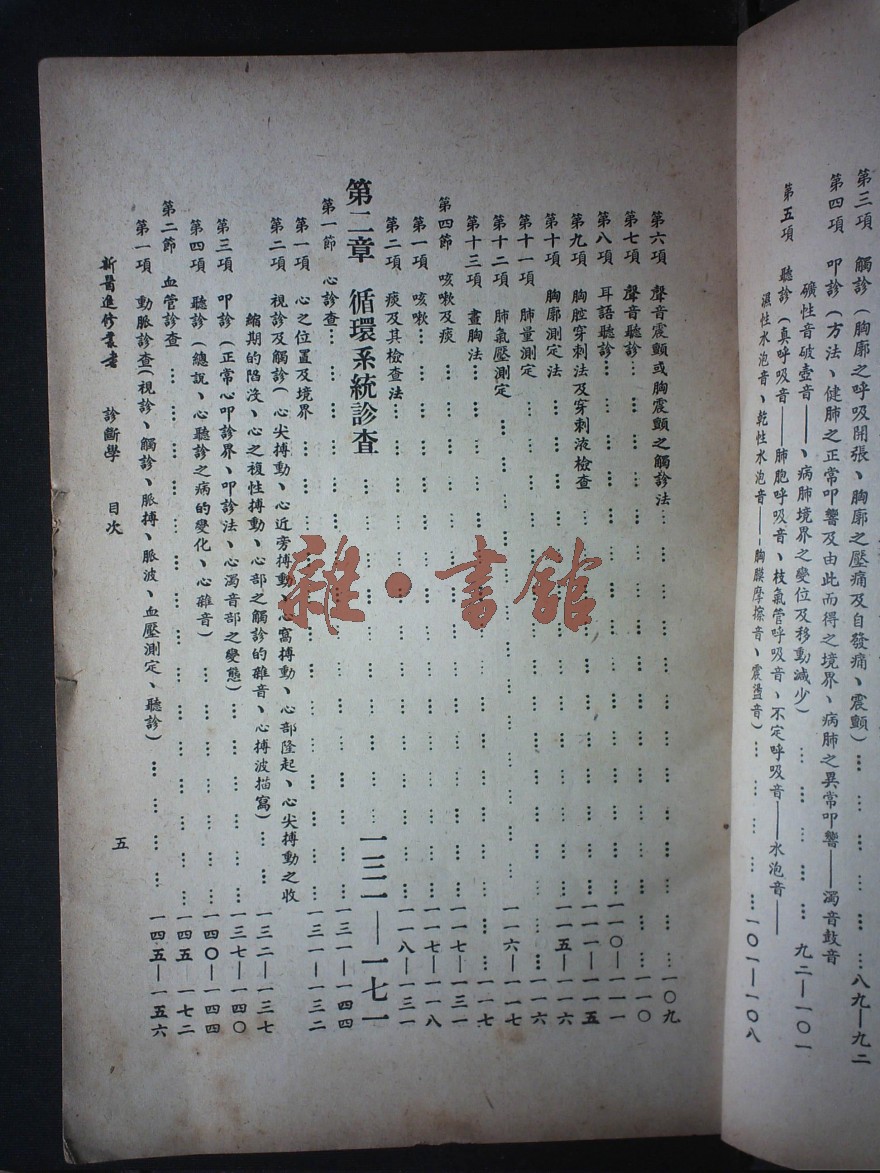 第三項 觸診（胸廓之呼吸開張、胸廓之壓痛及自發痛、震顫）… … … … …八九—九二
第四項 叩診（方法、健肺之正常叩響及由此而得之境界、病肺之異常叩響——濁音鼓音
礦性音破壺音——、病肺境界之變位及移動減少） … … … … … 九二—一〇一
第五項 聽診（真呼吸音——肺胞呼吸音、枝氣管呼吸音、不定呼吸音——水泡音——
濕性水泡音、乾性水泡音——胸膜摩擦音、震盪音）… … … … …一〇一—一〇八
第六項 聲音震顫或胸震顫之觸診法… … … … … … … … … …一〇九
第七項 聲音聽診… … … … … … … … … … … … …一一〇
第八項 耳語聽診… … … … … … … … … … … …一一〇—一一一
第九項 胸腔穿刺法及穿刺液檢查… … … … … … … … …一一一—一一五
第十項 胸廓測定法… … … … … … … … … … …一一五—一一六
第十一項 肺量測定… … … … … … … … … … … …一一六
第十二項 肺氣壓測定 … … … … … … … … … …一一六—一一七
第十三項 畫胸法… … … … … … … … … … … … …一一七
第四節 咳嗽及痰 … … … … … … … … … … …一一七—一三一
第一項 咳嗽… … … … … … … … … … … … …一一七—一一八
第二項 痰及其檢查法… … … … … … … … … … …一一八—一三一
第二章 循環系統診査 … … … … … … … … … …一三一——一七一
第一節 心診查… … … … … … … … … … … … …一三一—一四四
第一項 心之位置及境界 … … … … … … … … … …一三一—一三二
第二項 視診及觸診（心尖搏動、心近旁搏動、心窩搏動、心部隆起、心尖搏動之收
縮期的陷沒、心之複性搏動、心部之觸診的雜音、心搏波描寫）… … …一三二—一三七
第三項 叩診（正常心叩診界、叩診法、心濁音部之變態）… … … … …一三七—一四〇
第四項 聽診（總說、心聽診之病的變化、心雜音） … … … … … … …一四〇—一四四
第二節 血管診查 … … … … … … … … … … … … …一四五—一七二
第一項 動脈診查（視診、觸診、脈搏、脈波、血壓測定、聽診）… … … … …一四五—一五六
新醫進修叢書 診斷學 目次 五
雜·書館